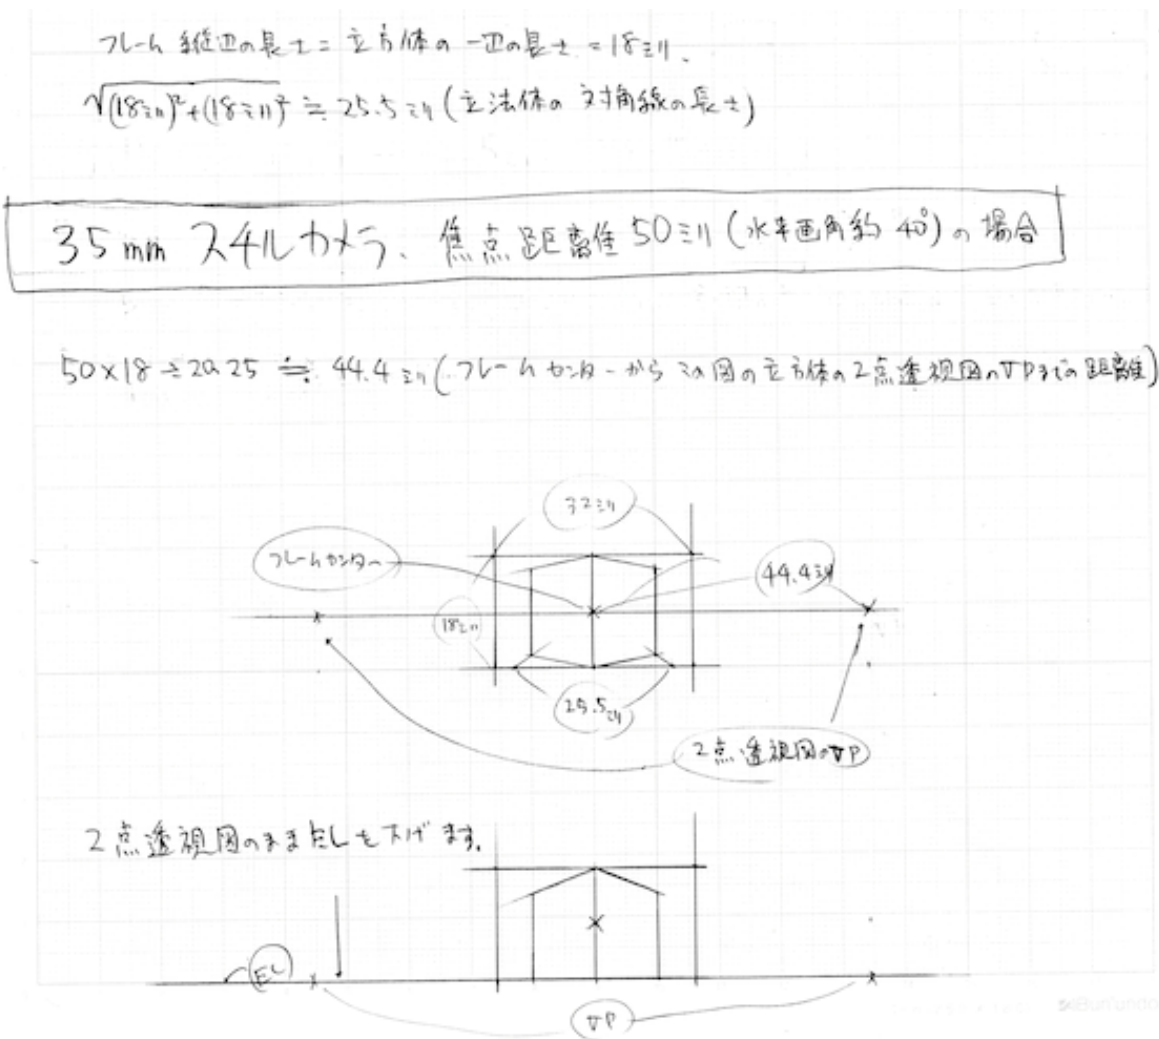 フレーム縦辺の長さ=立方体の一辺の長さ=18ミリ.
√(18ミリ)²+(18ミリ)² ≒ 25.5ミリ(立法体の対角線の長さ)
35mm スチルカメラ、焦点距離50ミリ(水平画角約40°)の場合
50×18÷20.25 ≒ 44.4ミリ(フレームセンターからこの図の立方体の2点透視図のVPまでの距離)
32ミリ
フレームセンター
44.4ミリ
18ミリ
25.5ミリ
2点透視図のVP
2点透視図のままELを下げます.
EL
VP